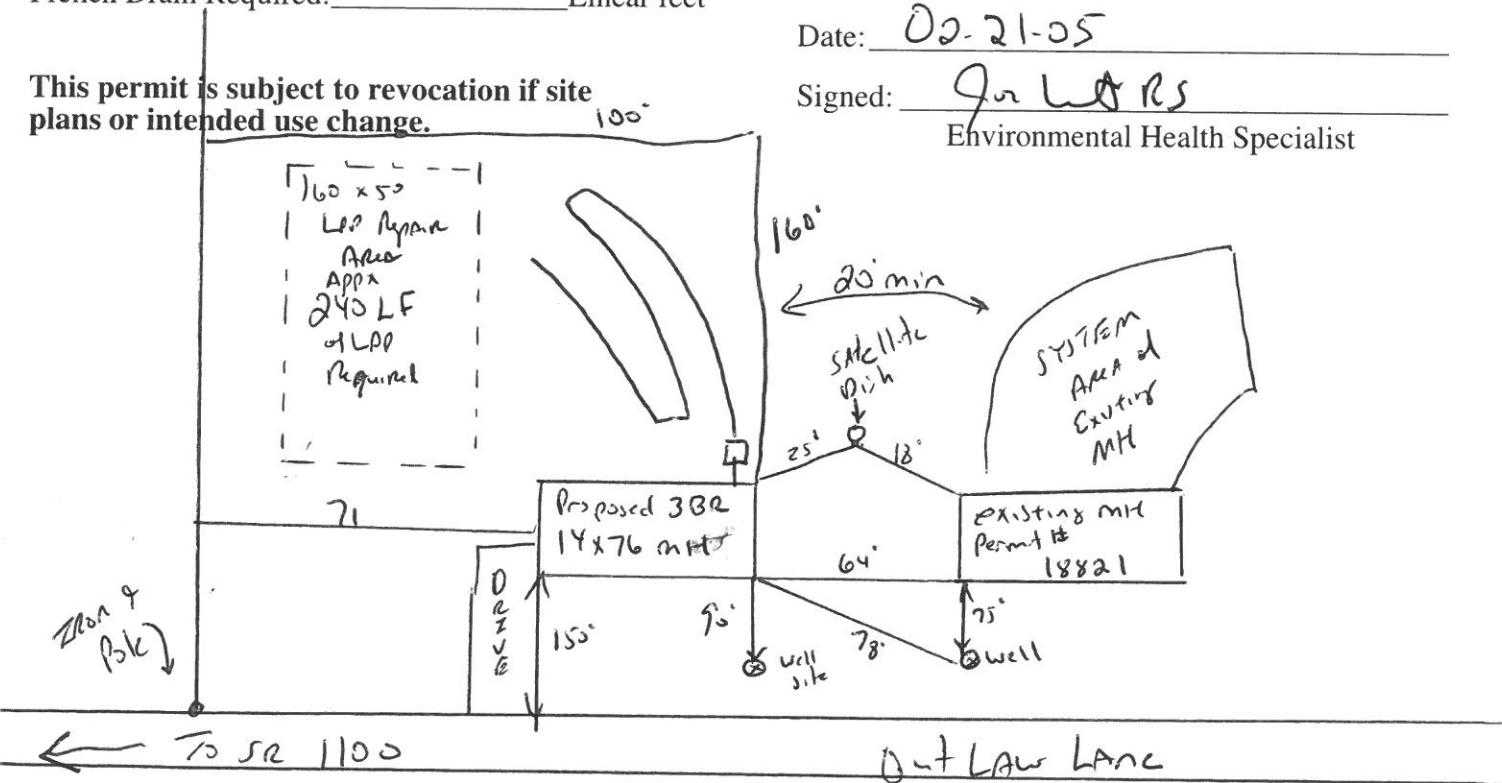 French Drain Required: Linear feet
Date: 02-21-05
This permit is subject to revocation if site
plans or intended use change.
Signed: RS
Environmental Health Specialist
100'
160 x 50
LPP Repair
Area
Appx
240 LF
of LPP
Required
160'
20' min
Satellite
Dish
25'
18'
SYSTEM
AREA of
Existing
MH
71
Proposed 3BR
14x76 MH
existing MH
Permit #
18821
64'
DRIVE
150'
90'
78'
75'
well
site
well
Iron &
Pole
To SR 1100
Outlaw Lane